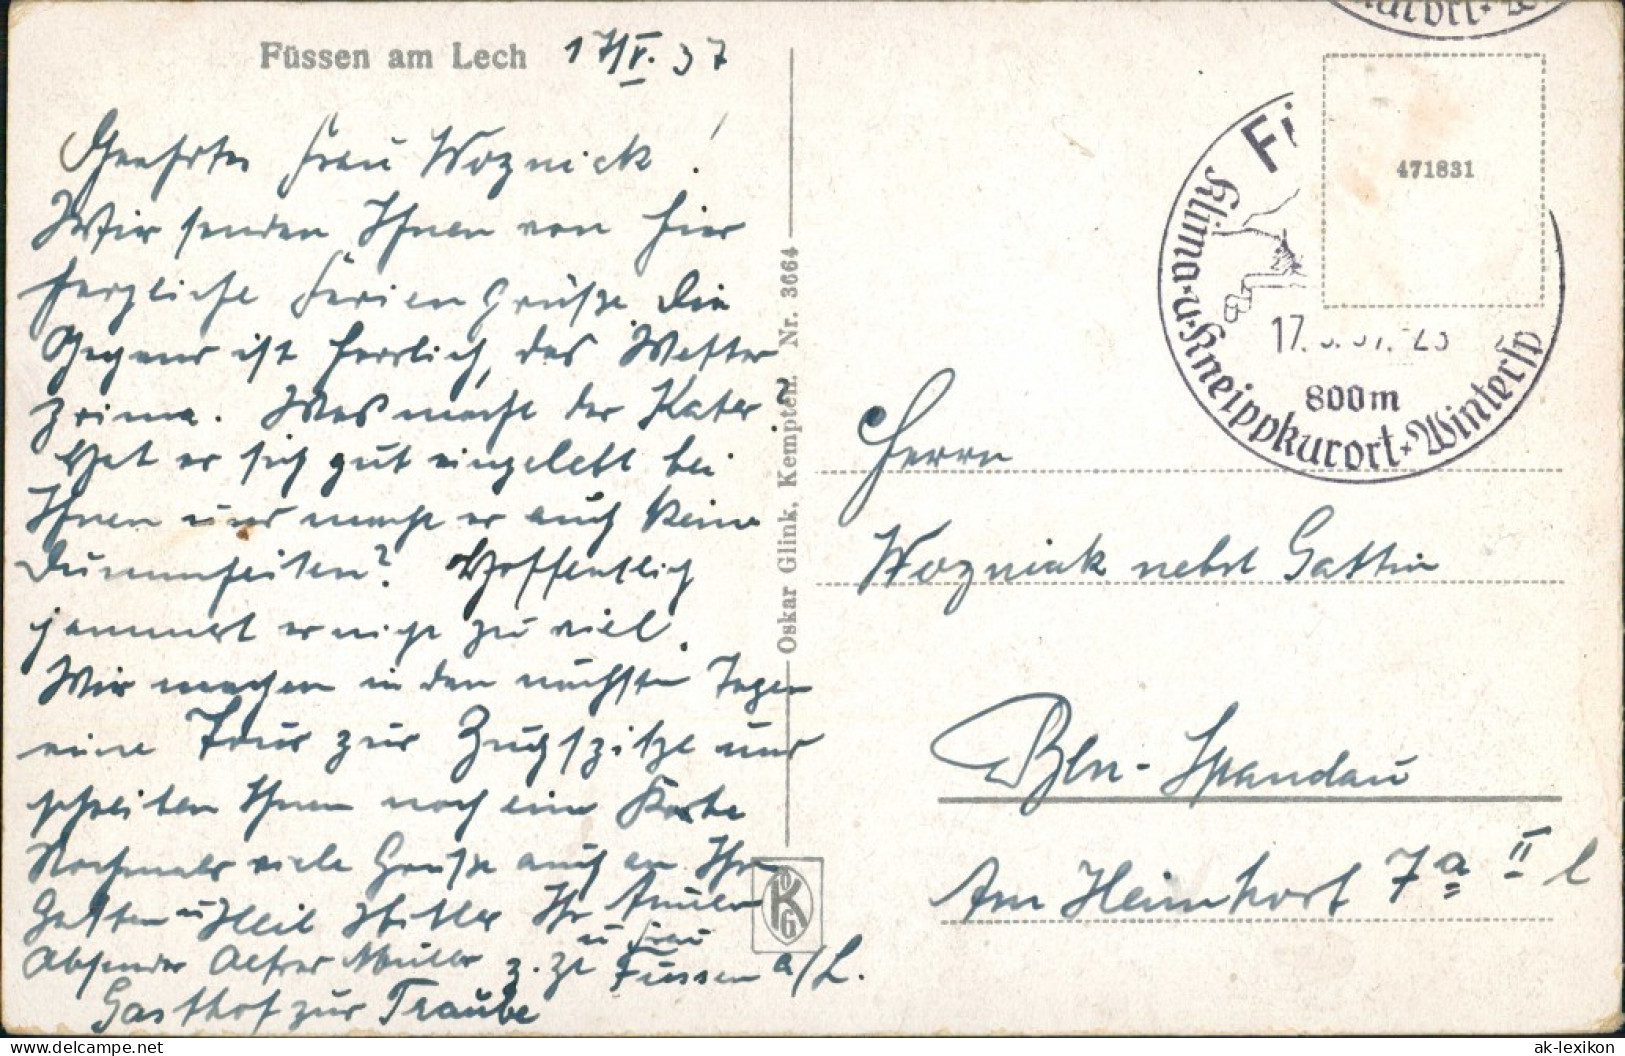 Füssen am Lech 17/V. 37
Geehrter Frau Woznick!
Wir senden Ihnen von hier
herzliche Ferien Grüße. Die
Gegend ist herrlich, das Wetter
prima. Was macht der Kater?
Hat er sich gut eingelebt bei
Ihnen und macht er auch keine
Dummheiten? Hoffentlich
jammert er nicht zu viel.
Wir machen in den nächsten Tagen
eine Tour zur Zugspitze und
schreiben Ihnen noch eine Karte
Nochmals viele Grüße auch an Ihren
Gatten u Heil Hitler Ihr
u Frau
Absender Alfred Müller z. Zt Füssen a/L.
Gasthof zur Traube
Oskar Glink, Kempten. Nr. 3664
KG
471831
Klima-u-Kneippkurort-Wintersp
17.
800m
Herrn
Wozniak nebst Gattin
Bln-Spandau
Am Heimhort 7a II l
hippostcard.com
ak-lexikon